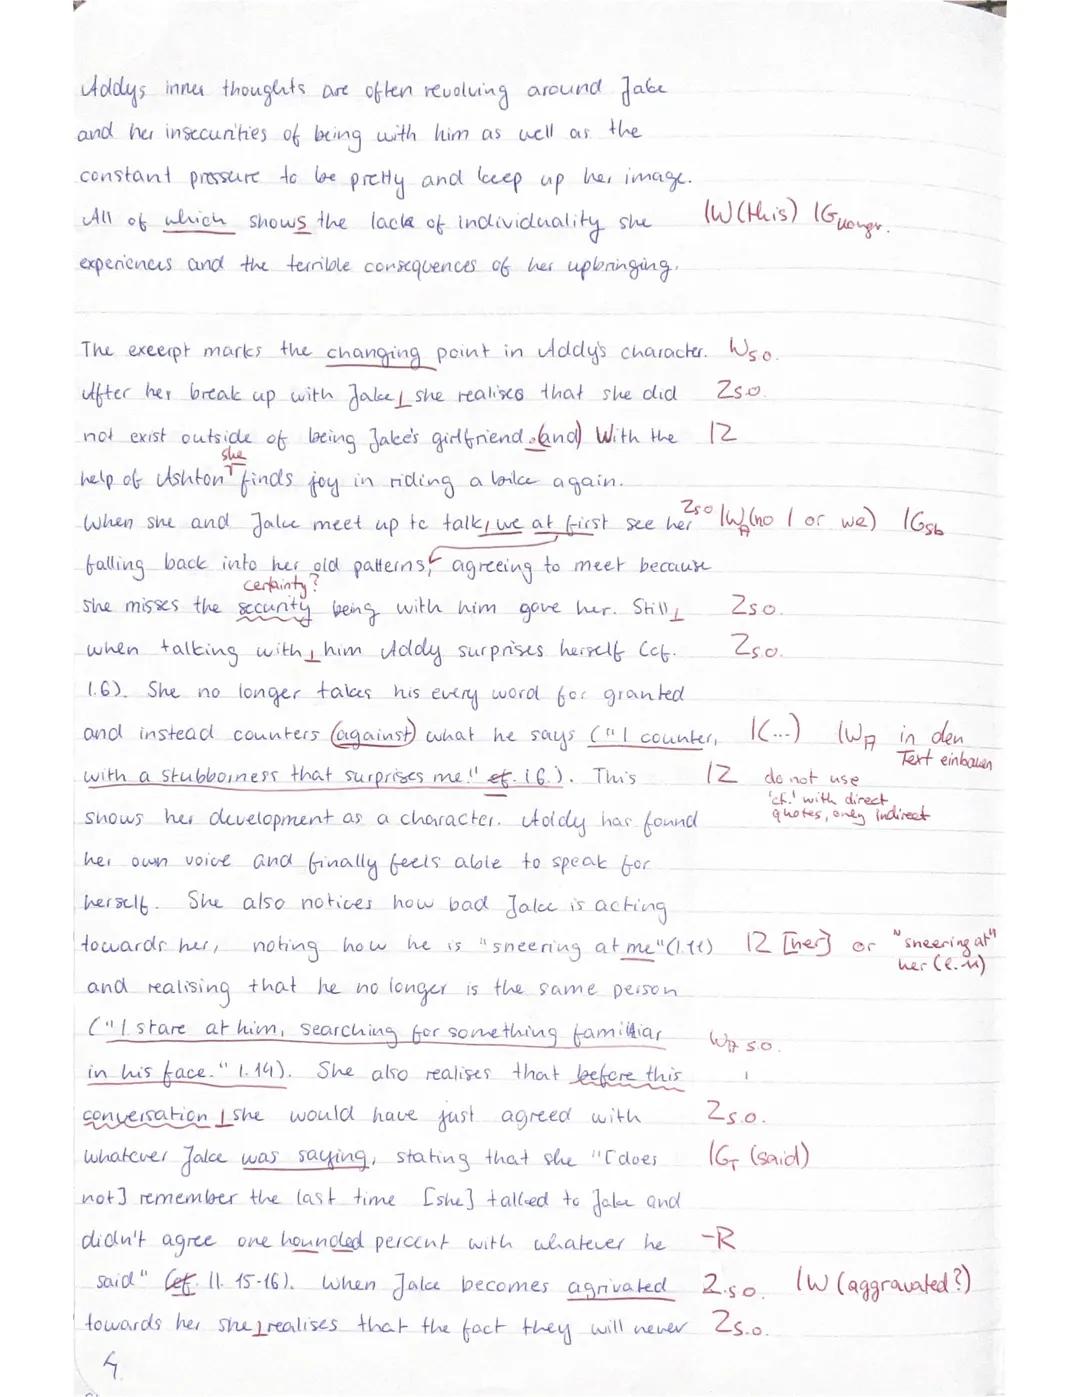 Addys inner thoughts are often revolving around Jake
and her insecurities of being with him as well as the
constant pressure to be pretty and keep up her image.
All of which shows the lack of individuality she |W (this) |G Kongr.
experiences and the terrible consequences of her upbringing.
The exeerpt marks the changing point in Addy's character. W s.o.
After her break up with Jake she realises that she did Z s.o.
not exist outside of being Jake's girlfriend. (and) With the |Z
she
help of Ashton finds joy in riding a bike again.
When she and Jake meet up to talk, we at first see her Z s.o |W A (no I or we) |G sb
falling back into her old patterns, agreeing to meet because
certainty?
she misses the security being with him gave her. Still Z s.o.
when talking with him Addy surprises herself (cf. Z s.o.
l.6). She no longer takes his every word for granted
and instead counters (against) what he says ("I counter, |(...) |W A in den
Text einbauen
with a stubborness that surprises me." cf. l6.). This |Z do not use
'cf.' with direct
quotes, only indirect
shows her development as a character. Addy has found
her own voice and finally feels able to speak for
herself. She also notices how bad Jake is acting
towards her, noting how he is "sneering at me" (l.11) |Z [her] or "sneering at"
her (l.11)
and realising that he no longer is the same person
("I stare at him, searching for something familiar W A s.o.
in his face." l.14). She also realises that before this
conversation she would have just agreed with Z s.o.
whatever Jake was saying, stating that she "[does |G T (said)
not] remember the last time [she] talked to Jake and
didn't agree one hounded percent with whatever he -R
said" (cf. ll. 15-16). When Jake becomes agrivated Z s.o. |W (aggravated?)
towards her she realises that the fact they will never Z s.o.
4